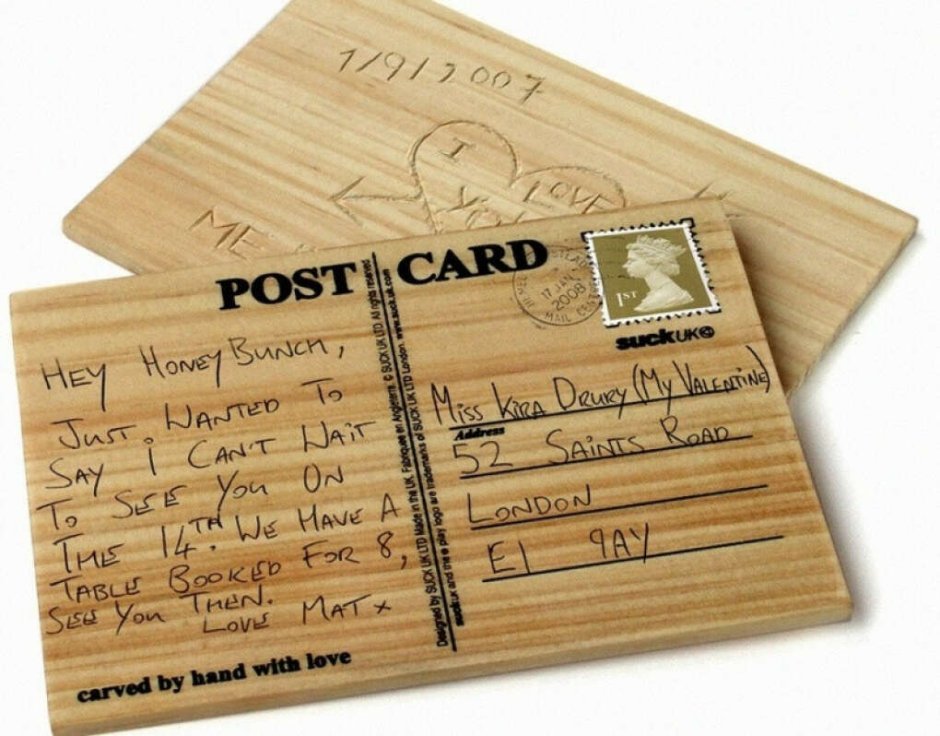 1/9/2007
I
LOVE
YOU
ME
POST CARD
1ST
17 JAN
2008
MAIL
suckUK
HEY HONEY BUNCH,
JUST WANTED TO
SAY I CAN'T WAIT
TO SEE YOU ON
THE 14TH. WE HAVE A
TABLE BOOKED FOR 8,
SEE YOU THEN.
LOVE MAT x
carved by hand with love
Designed by SUCK UK LTD Made in the UK. Fabrique en Angleterre. © SUCK UK LTD All rights reserved.
suckuk and the play logo are trademarks of SUCK UK LTD London. www.suck.uk.com
Miss Kira Drury (My Valentine)
Address
52 SAINTS ROAD
LONDON
E1 9AY